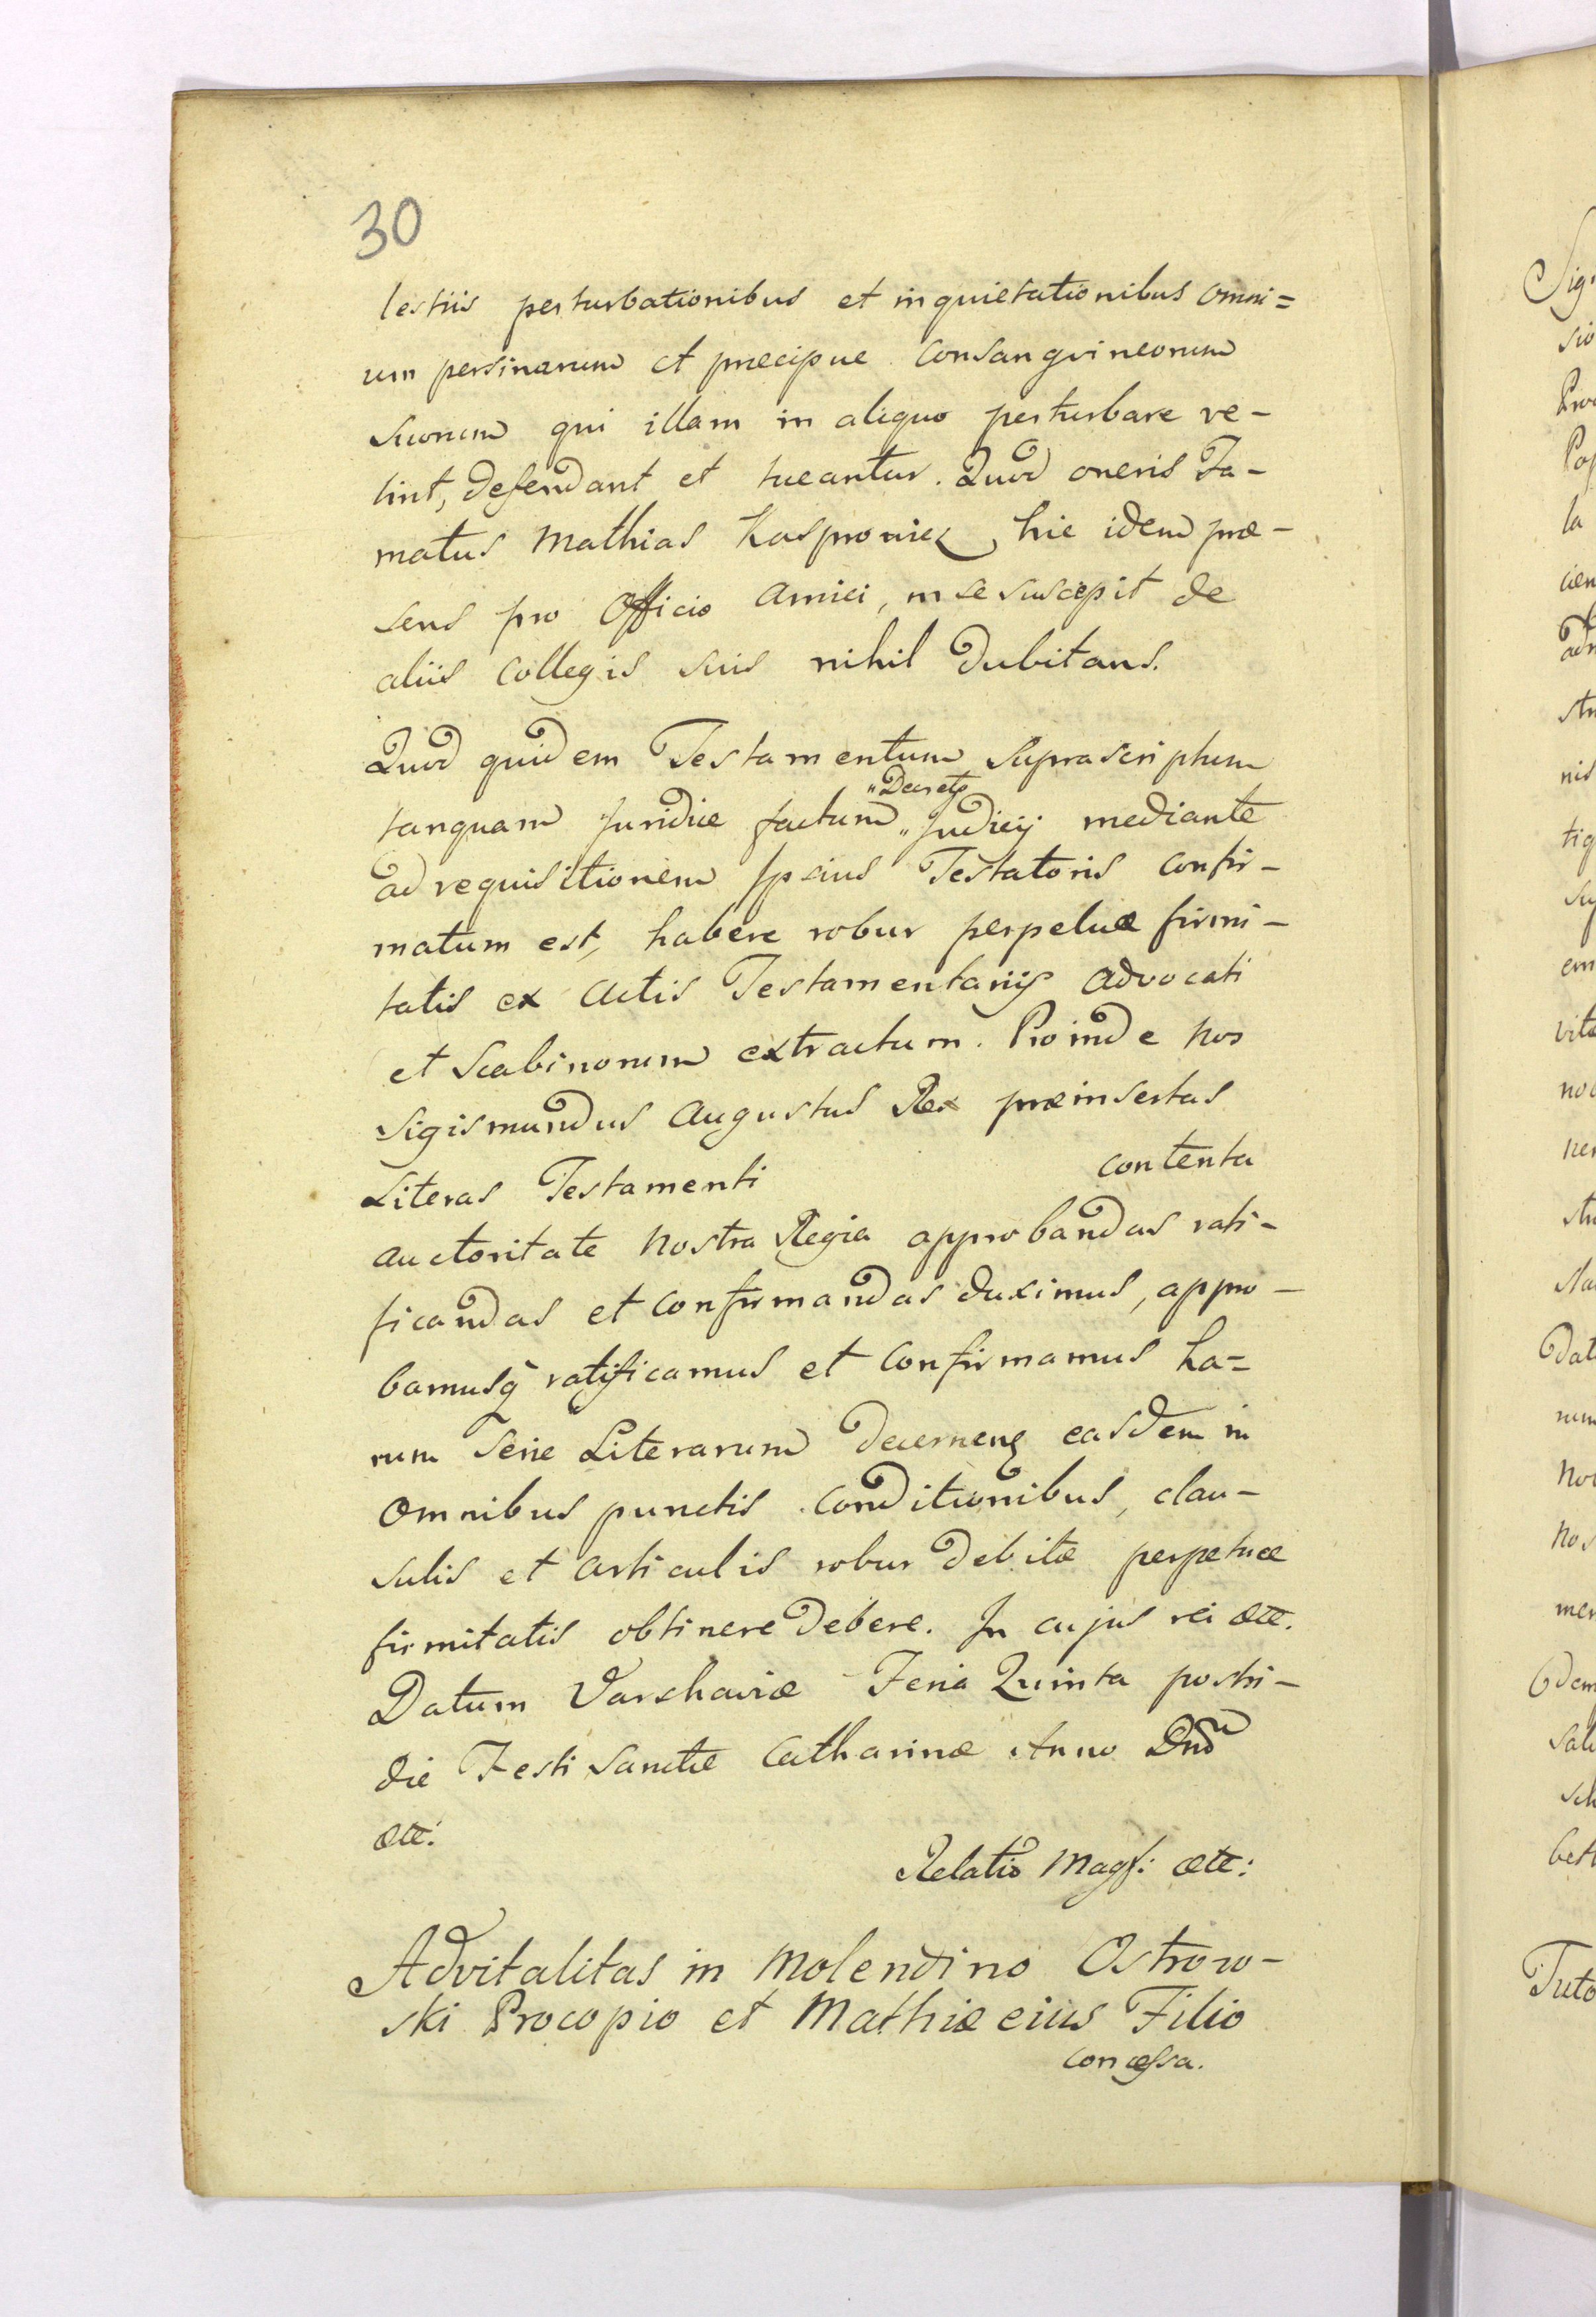 30
lestiis perturbationibus et inquietationibus omni=
um persinarum et præcipue Consangvineorum
Suorum qui illam in aliquo perturbare ve-
lint, defendant et tueantur. Quod oneris Fa-
matus Mathias Kasprowicz hic idem præ-
sens pro Officio Amici, in se suscepit de
aliis Collegis suis nihil dubitans.
Quod quidem Testamentum Suprascriptum
"Decreto
tanquam Juridice factum „ Judicij mediante
ad requisitionem Ipsius Testatoris confir-
matum est, habere robur perpetuæ firmi-
tatis ex Actis Testamentarijs Advocati
et Scabinorum extractum. Proinde Nos
Sigismundus Augustus Rex præinsertas
Literas Testamenti contenta
auctoritate Nostra Regia approbandas rati-
ficandas et Confirmandas duximus, appro-
bamusq ratificamus et Confirmamus ha=
rum Serie Literarum decernen easdem in
omnibus punctis Conditionibus, clau-
sulis et Articulis robur debitæ perpetuæ
firmitatis obtinere debere. In cujus rei ætt.
Datum Varschaviæ Feria Quinta postri-
die Festi Sanctæ Catharinæ Anno Dnō
ætt:
Relatio Magf: ætt:
Advitalitas in Molendino Ostrow-
ski Procopio et Mathiæ eius Filio
concessa.
Sig
sio
la
nis
tig
em
vita
Dat
rum
Nos